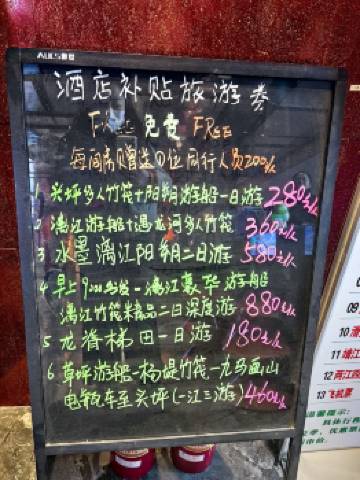 AUCS
酒店补贴旅游券
FREE 免费 FREE
每间房赠送 位同行人员200元
1 兴坪多人竹筏+阳朔游船一日游 280元/人
2 漓江游船+遇龙河多人竹筏 360元/人
3 水墨漓江阳朔二日游 580元/人
4 早上9:00出发-漓江豪华游船
漓江竹筏精品二日深度游 880元/人
5 龙脊梯田一日游 180元/人
6 草坪游船-杨堤竹筏-九马画山
电瓶车至兴坪(一江三游) 460元/人
08
09
10
11
12 两江
13 飞机票
温馨提示: